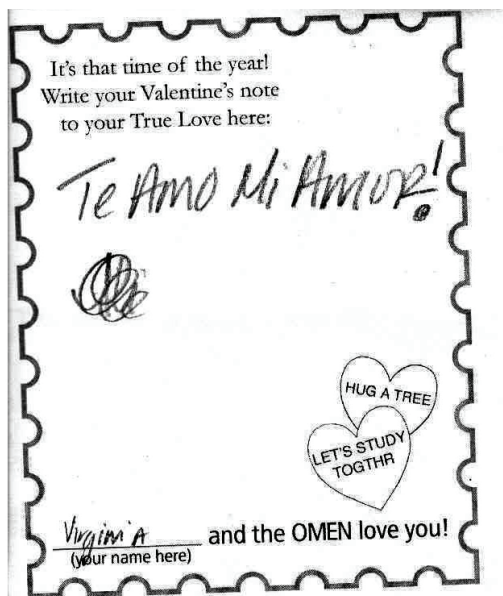 It's that time of the year!
Write your Valentine's note
to your True Love here:
Te Amo Mi Amor!
HUG A TREE
LET'S STUDY
TOGTHR
Virginia and the OMEN love you!
(your name here)